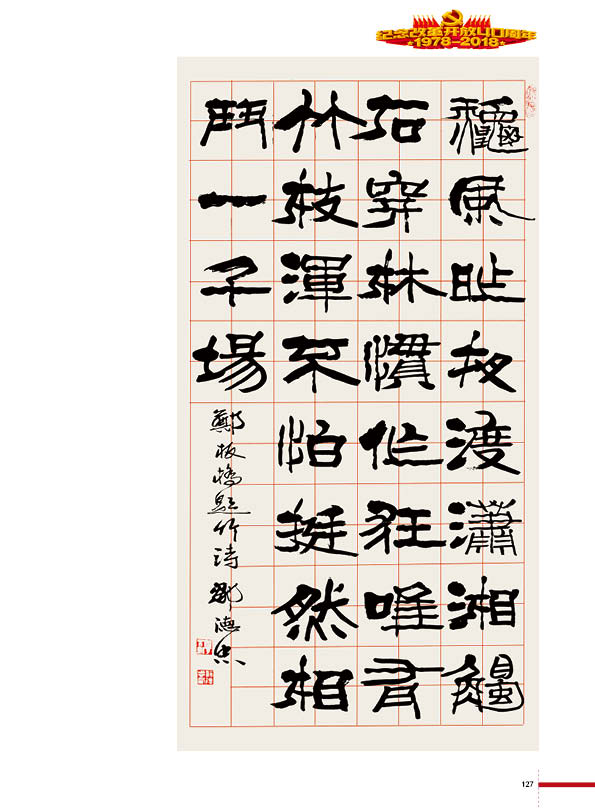 纪念改革开放40周年
1978-2018
龝風昨夜渡瀟湘觸
石穿林慣作狂唯有
竹枝渾不怕挺然相
鬥一千場
鄭板橋題竹诗 德忠
127